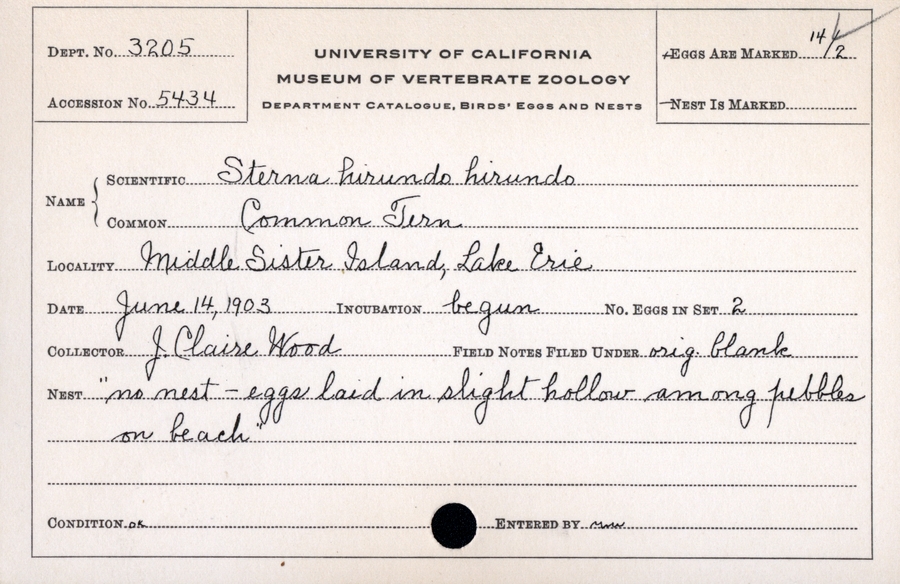 DEPT. NO. 3205
ACCESSION NO. 5434
UNIVERSITY OF CALIFORNIA
MUSEUM OF VERTEBRATE ZOOLOGY
DEPARTMENT CATALOGUE, BIRDS' EGGS AND NESTS
EGGS ARE MARKED 14/2
NEST IS MARKED
NAME
SCIENTIFIC Sterna hirundo hirundo
COMMON Common Tern
LOCALITY Middle Sister Island, Lake Erie
DATE June 14, 1903 INCUBATION begun NO. EGGS IN SET 2
COLLECTOR J. Claire Wood FIELD NOTES FILED UNDER orig. blank
NEST "no nest – eggs laid in slight hollow among pebbles
on beach"
CONDITION ok ENTERED BY